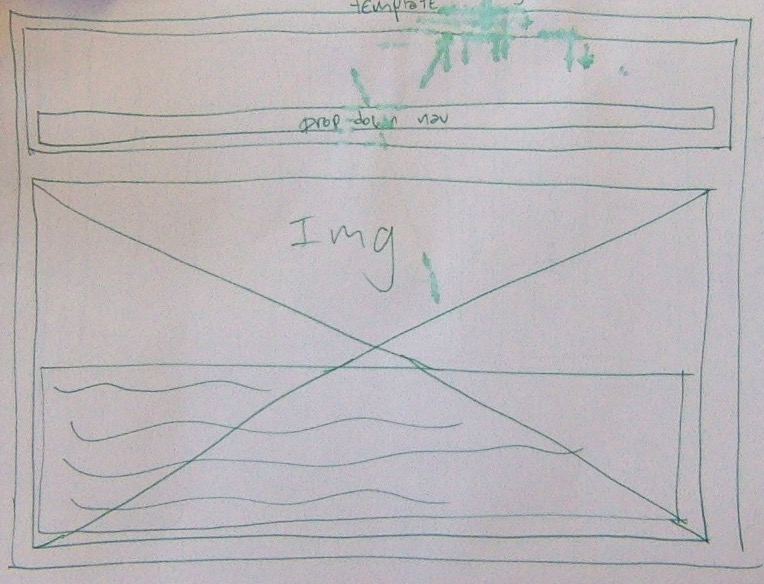 template
Drop down nav
Img